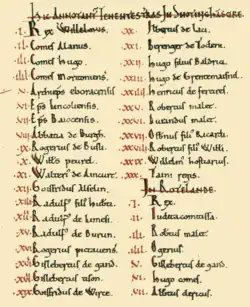 Hic Annotant Tenentes Tras In Snotinghscire.
.I. Rex Willelmus.
.II. Comes Alanus.
.III. Comes Hugo.
.IIII. Comes moritoniensis.
.V. Archieps eboracensis
.VI. Eps Lincoliensis.
.VII. Eps Baiocensis.
.VIII. Abbatia de Burgh.
.IX. Rogerius de Busli.
.X. Wills peurel.
.XI. Walteri de Aincurt.
.XII. Goisfridus Alselin.
.XIII. Radulf fili huberti.
.XIIII. Radulf de Limesi.
.XV. Radulf de Burun.
.XVI. Rogerius pictauens.
.XVII. Gislebertus de gand.
.XVIII. Gislebertus tison.
.XIX. Goisfridus de Wirce.
.XX. Ilbertus de Laci.
.XXI. Berenger de Todeni.
.XXII. Hugo filius Baldrici.
.XXIII. Hugo de Grentemaisnil
.XXIIII. Henricus de ferrariis.
.XXV. Robertus malet.
.XXVI. Durandus malet.
.XXVII. Osbernus filius Ricardi
.XXVIII. Robertus filius Willi.
.XXIX. Willelm hostiarius.
.XXX. Taini regis.
In Rotelande.
.I. Rex.
.II. Iudeta comitissa.
.III. Robtus malet.
.IIII. Ogerius.
.V. Gislebertus de gand.
.VI. Hugo comes.
.VII. Albertus clericus.